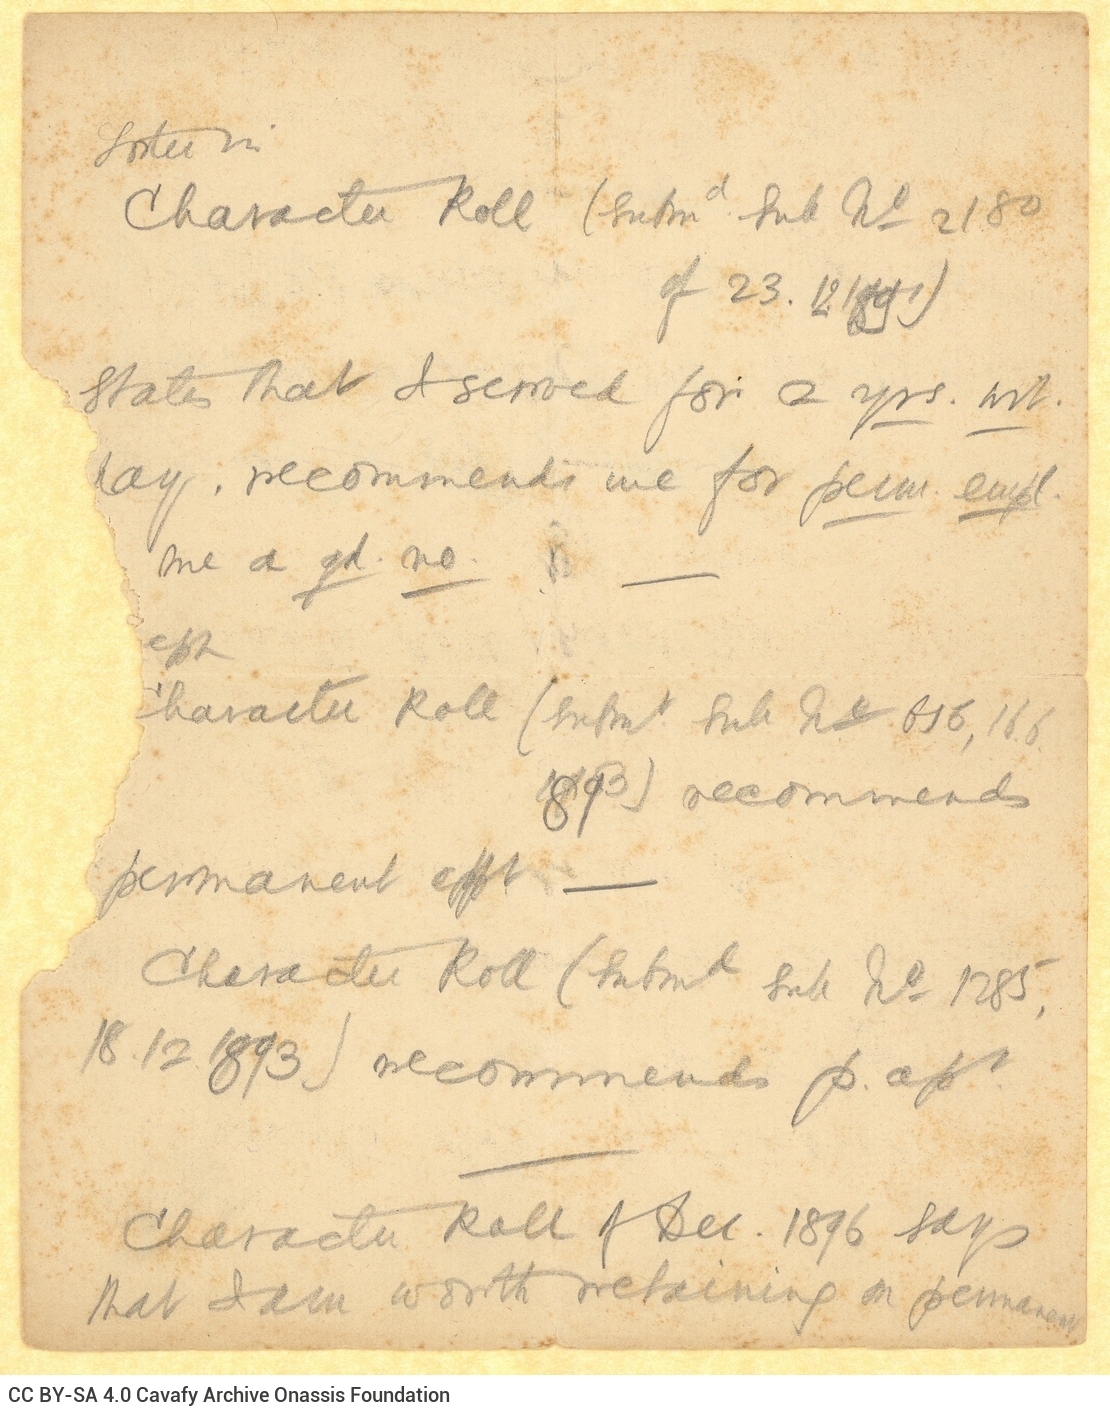 Foster in
Character Roll (Subm^d Sub N^o 2180
of 23. 12 1891)
States that I served for 2 yrs. wt.
pay, recommends me for perm. empl.
me a gd. no. —
Character Roll (Subm^d Sub N^o 656, 16.6
1893) recommends
permanent appt —
Character Roll (Subm^d Sub N^o 1285,
18.12.1893) recommends p. app^t.
Character Roll of Dec. 1896 says
that I am worth retaining on permanent
CC BY-SA 4.0 Cavafy Archive Onassis Foundation